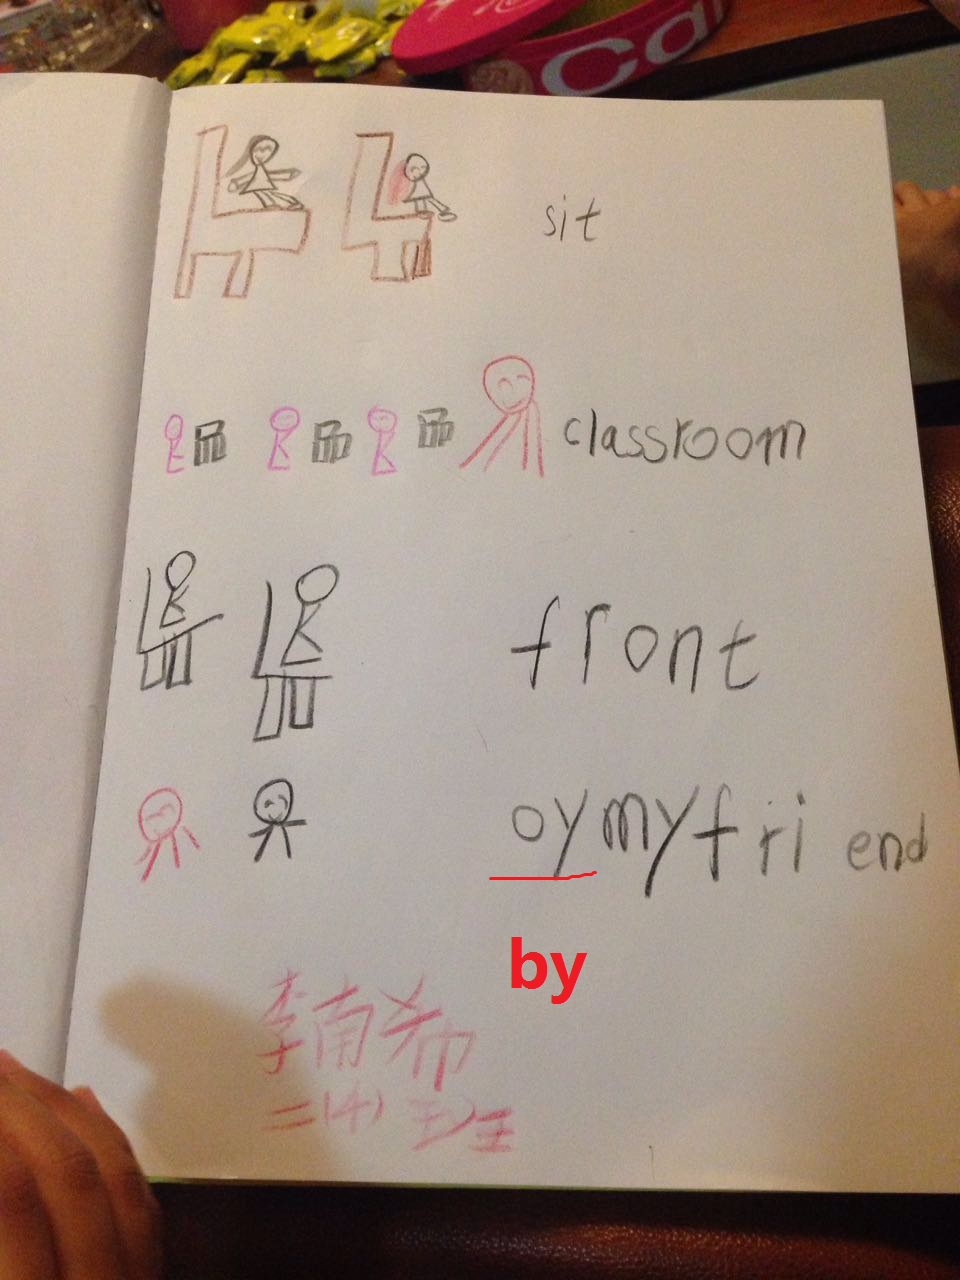 Ca
sit
classroom
front
oy my fri end
by
李南希
二(4)班